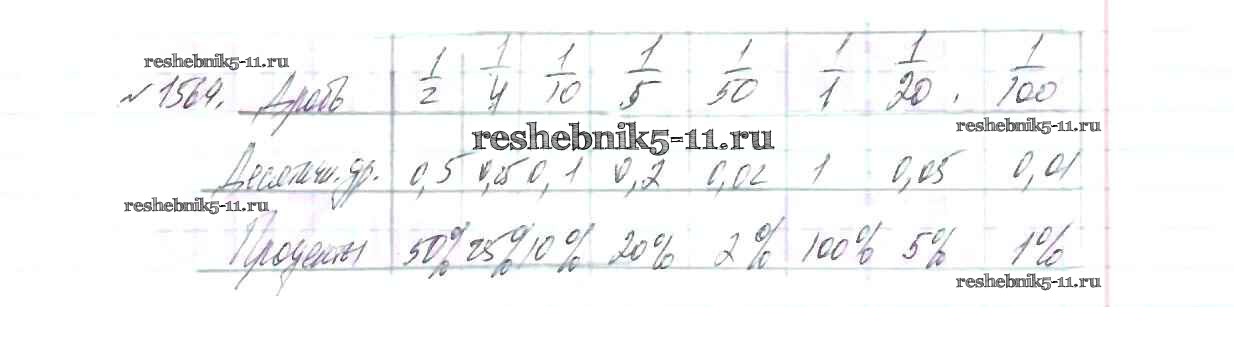 reshebnik5-11.ru
№ 1564. Дробь 1/2 1/4 1/10 1/5 1/50 1/1 1/20 . 1/100
reshebnik5-11.ru
reshebnik5-11.ru
Десятичн. др. 0,5 0,25 0,1 0,2 0,02 1 0,05 0,01
reshebnik5-11.ru
Проценты 50% 25% 10% 20% 2% 100% 5% 1%
reshebnik5-11.ru